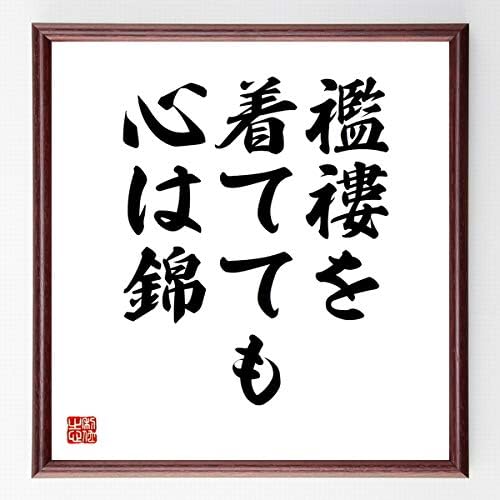 襤褸を
着てても
心は錦